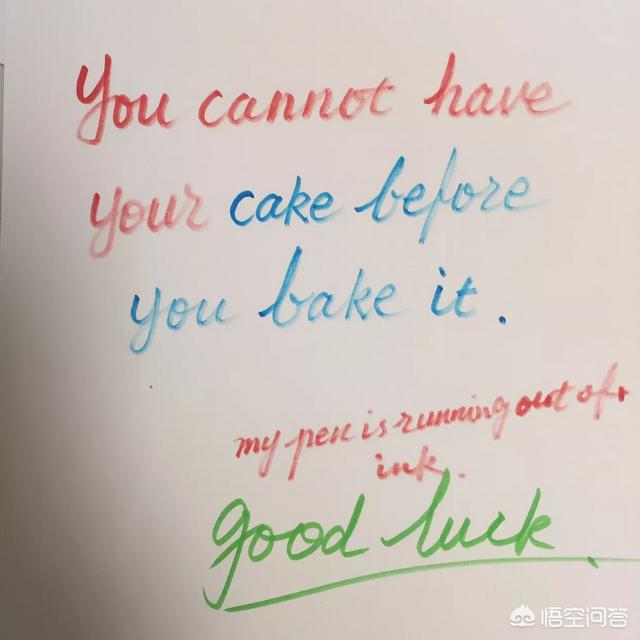 You cannot have
your cake before
you bake it.
my pen is running out of
ink.
good luck.
悟空问答